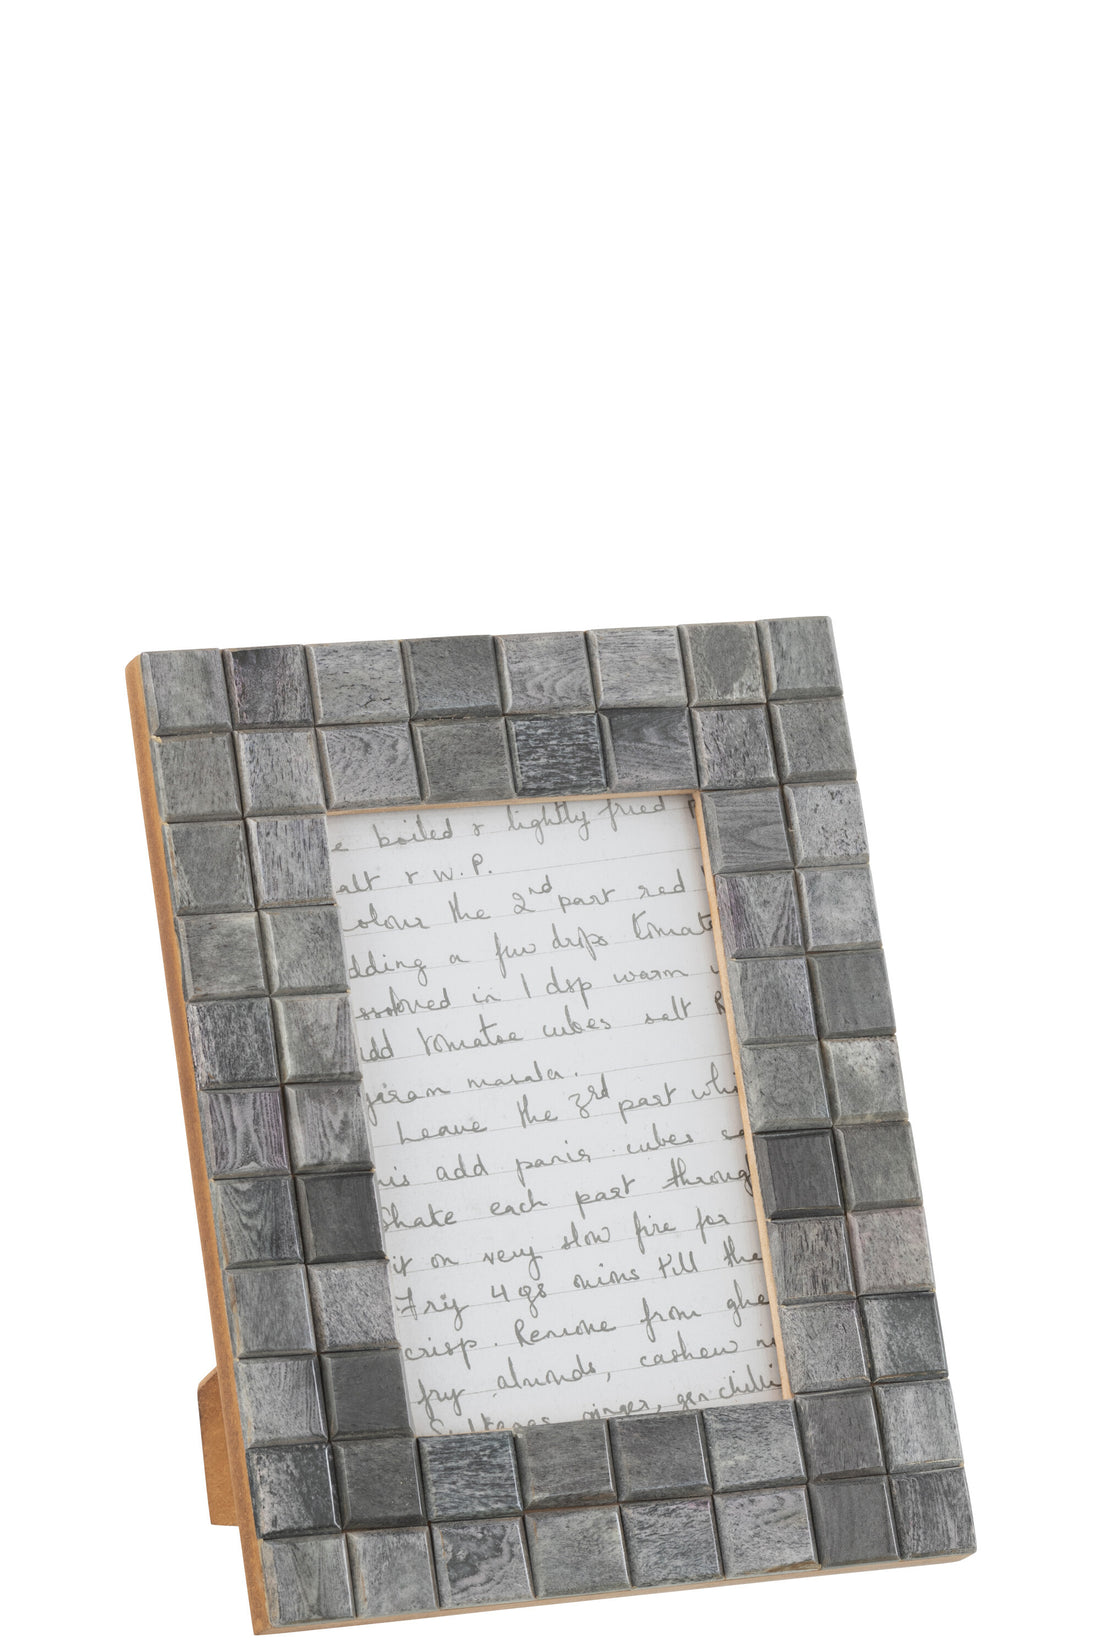 e boiled & lightly fried
alt & W.P.
olour the 2nd part red
dding a few drops tomato
ssolved in 1 dsp warm
dd tomatoe cubes salt R
garam masala.
Leave the 3rd part whi
is add panir cubes sa
Shake each part throug
it on very slow fire for
Fry 4 gs onions till the
crisp. Remove from ghe
fry almonds, cashew n
Sultanas ginger, grn chilli